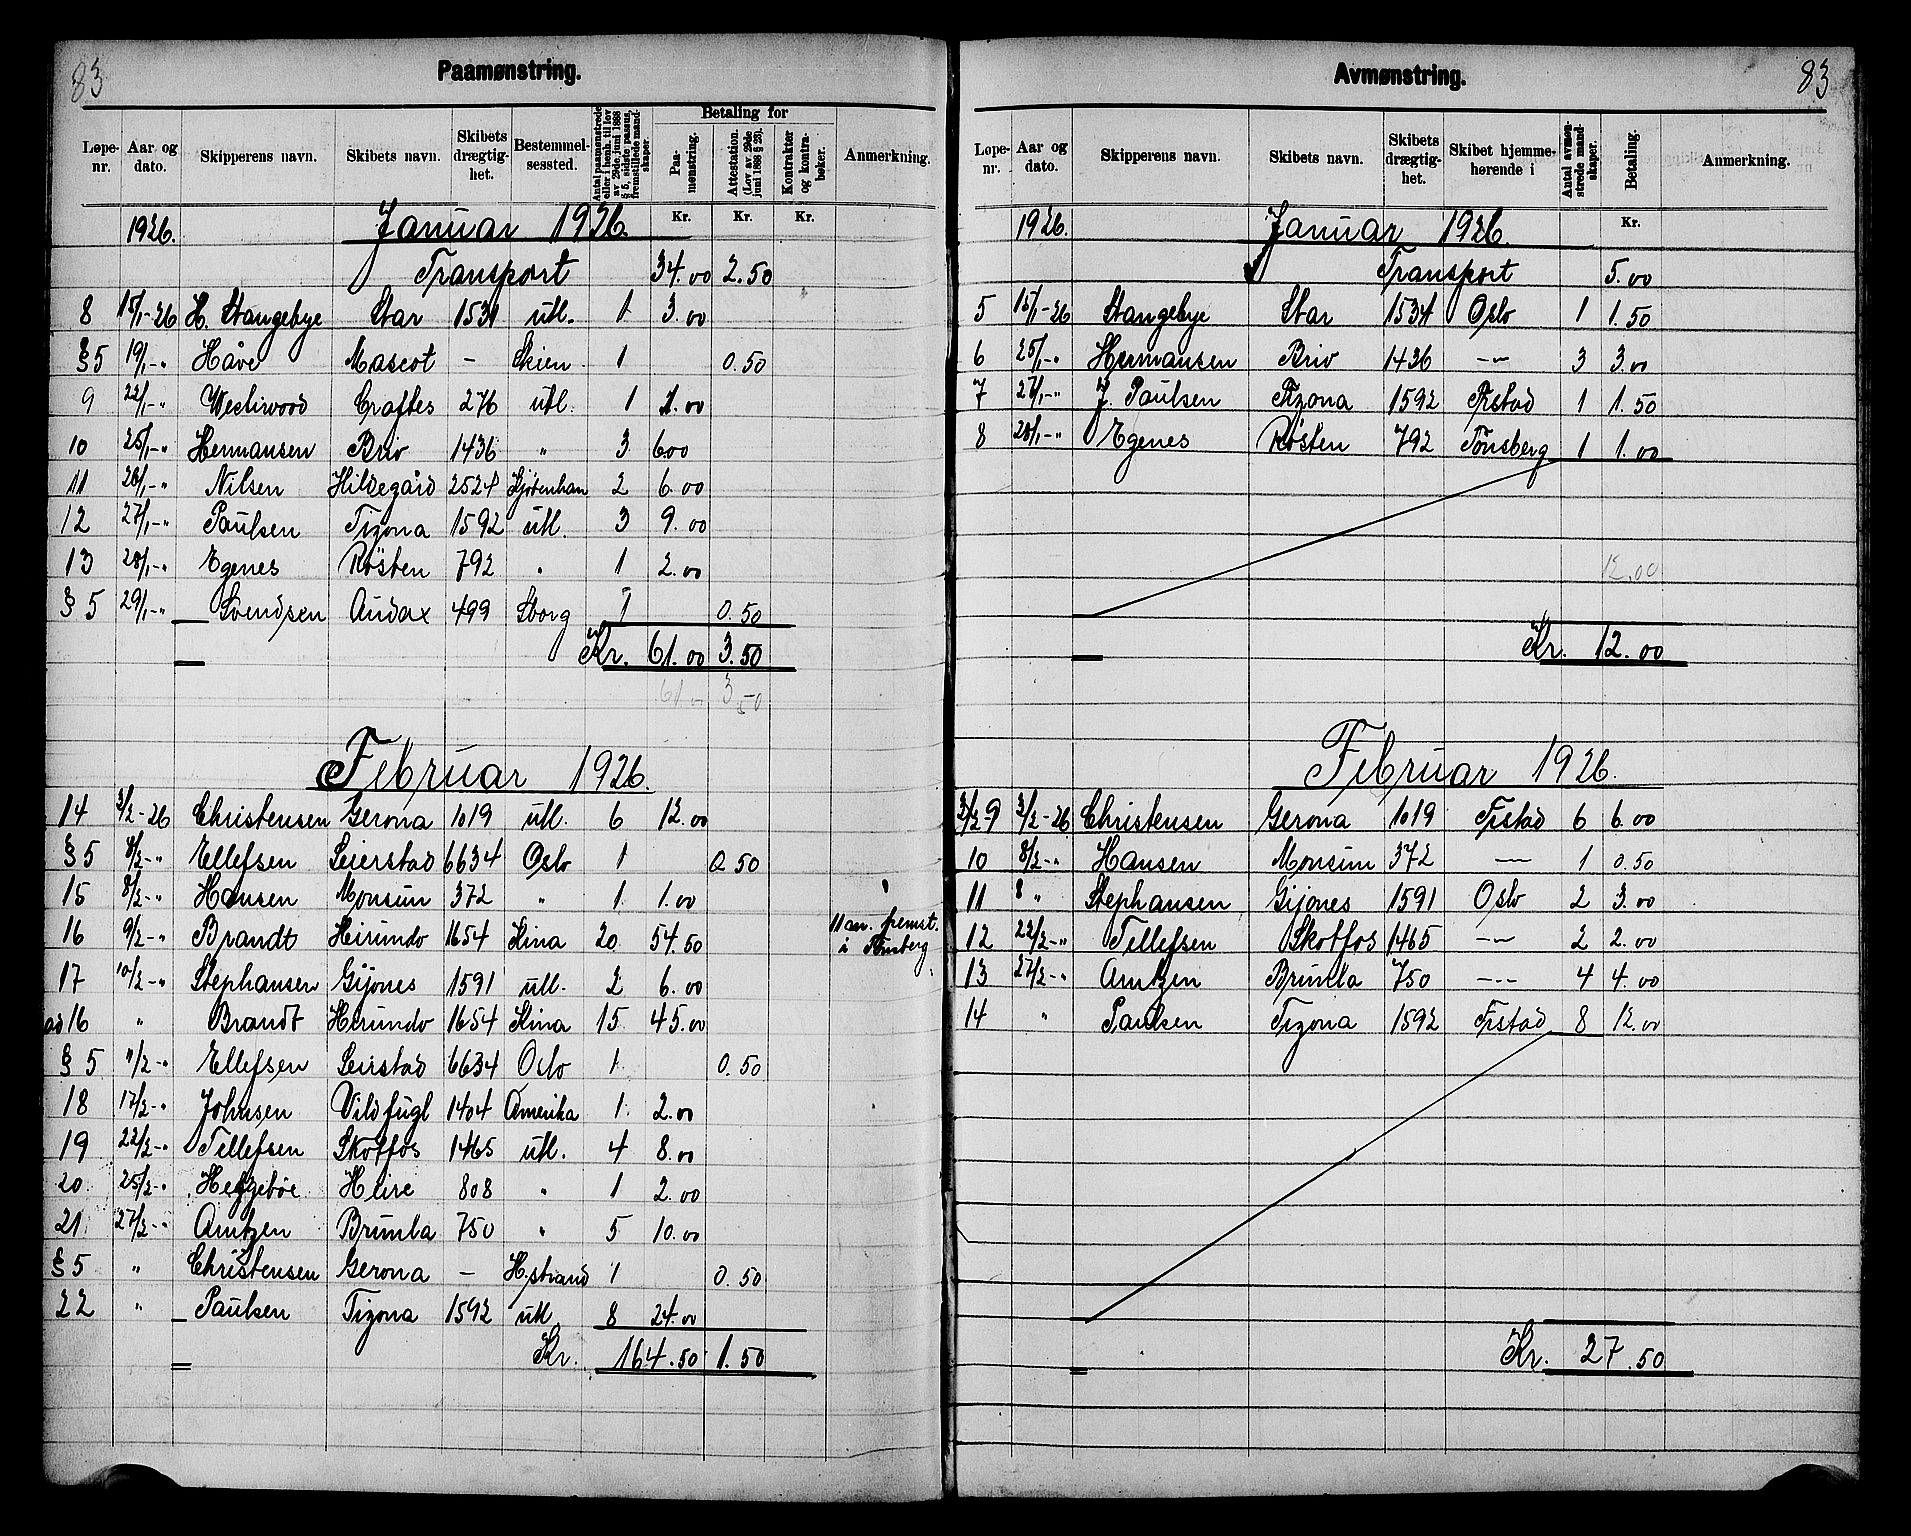 83
Paamønstring.
Løpe-nr. Aar og dato. Skipperens navn. Skibets navn. Skibets drægtig-het. Bestemmel-sessted. Antal paamønstrede eller i henh. til lov av 29de juni 1888 § 5, sidste passus, fremstillede mand-skaper. Betaling for Paa-mønstring. Attestation. (Lov av 29de juni 1888 § 23). Kontrakter og kontra-bøker. Anmerkning.
Kr. Kr. Kr.
1926. Januar 1926.
Transport 34.00 2.50
8 15/1-26 H. Stangebye Star 1531 utl. 1 3.00
§5 19/1-" Håve Mascot - Skien 1 0.50
9 22/1-" Westwood Craftes 276 utl. 1 1.00
10 25/1-" Hermansen Brio 1436 " 3 600
11 26/1-" Nilsen Hildegård 2524 Kjøbenhan 2 6.00
12 27/1-" Paulsen Tizona 1592 utl. 3 9.00
13 28/1-" Egenes Røsten 792 " 1 2.00
§5 29/1-" Svendsen Audax 499 Sborg 1 0.50
Kr. 61.00 3.50
61.00 3.50
Februar 1926.
14 3/2-26 Christensen Gerona 1019 utl. 6 12.00
§5 8/2-" Ellefsen Leierstad 6634 Oslo 1 0.50
15 8/2-" Hansen Monsun 372 " 1 1.00
16 9/2-" Brandt Heirundo 1654 Kina 20 54.50 11 an. fremst. i Tønsberg.
17 10/2-" Stephansen Gijones 1591 utl. 2 6.00
ad 16 " Brandt Hirundo 1654 Kina 15 45.00
§5 11/2-" Ellefsen Leirstad 6634 Oslo 1 0.50
18 17/2-" Johnsen Vildfugl 1404 Amerika 1 2.00
19 22/2-" Tellefsen Skotfos 1465 utl. 4 8.00
20 25/2-" Heggebøe Heire 808 " 1 2.00
21 27/2-" Arntzen Brunla 750 " 5 10.00
§5 " Christensen Gerona - H.strand 1 0.50
22 " Paulsen Tizona 1592 utl 8 24.00
Kr. 164.50 1.50
83
Avmønstring.
Løpe-nr. Aar og dato. Skipperens navn. Skibets navn. Skibets drægtig-het. Skibet hjemme-hørende i Antal avmøn-strede mand-skaper. Betaling. Anmerkning.
Kr.
1926. Januar 1926.
Transport 5.00
5 15/1-26 Stangebye Star 1534 Oslo 1 1.50
6 25/1-" Hermansen Brio 1436 -"- 3 3.00
7 27/1-" J. Paulsen Tizona 1592 Frstad 1 1.50
8 28/1-" Egenes Røsten 792 Tønsberg 1 1.00
12.00
Kr. 12.00
Februar 1926.
9 3/2-26 Christensen Gerona 1019 Frstad 6 6.00
10 8/2-" Hansen Monsun 372 -"- 1 0.50
11 8 " Stephansen Gijones 1591 Oslo 2 3.00
12 22/2-" Tellefsen Skotfos 1465 -"- 2 2.00
13 27/2-" Arntzen Brunla 750 -"- 4 4.00
14 " Paulsen Tizona 1592 Frstad 8 12.00
Kr. 27.50